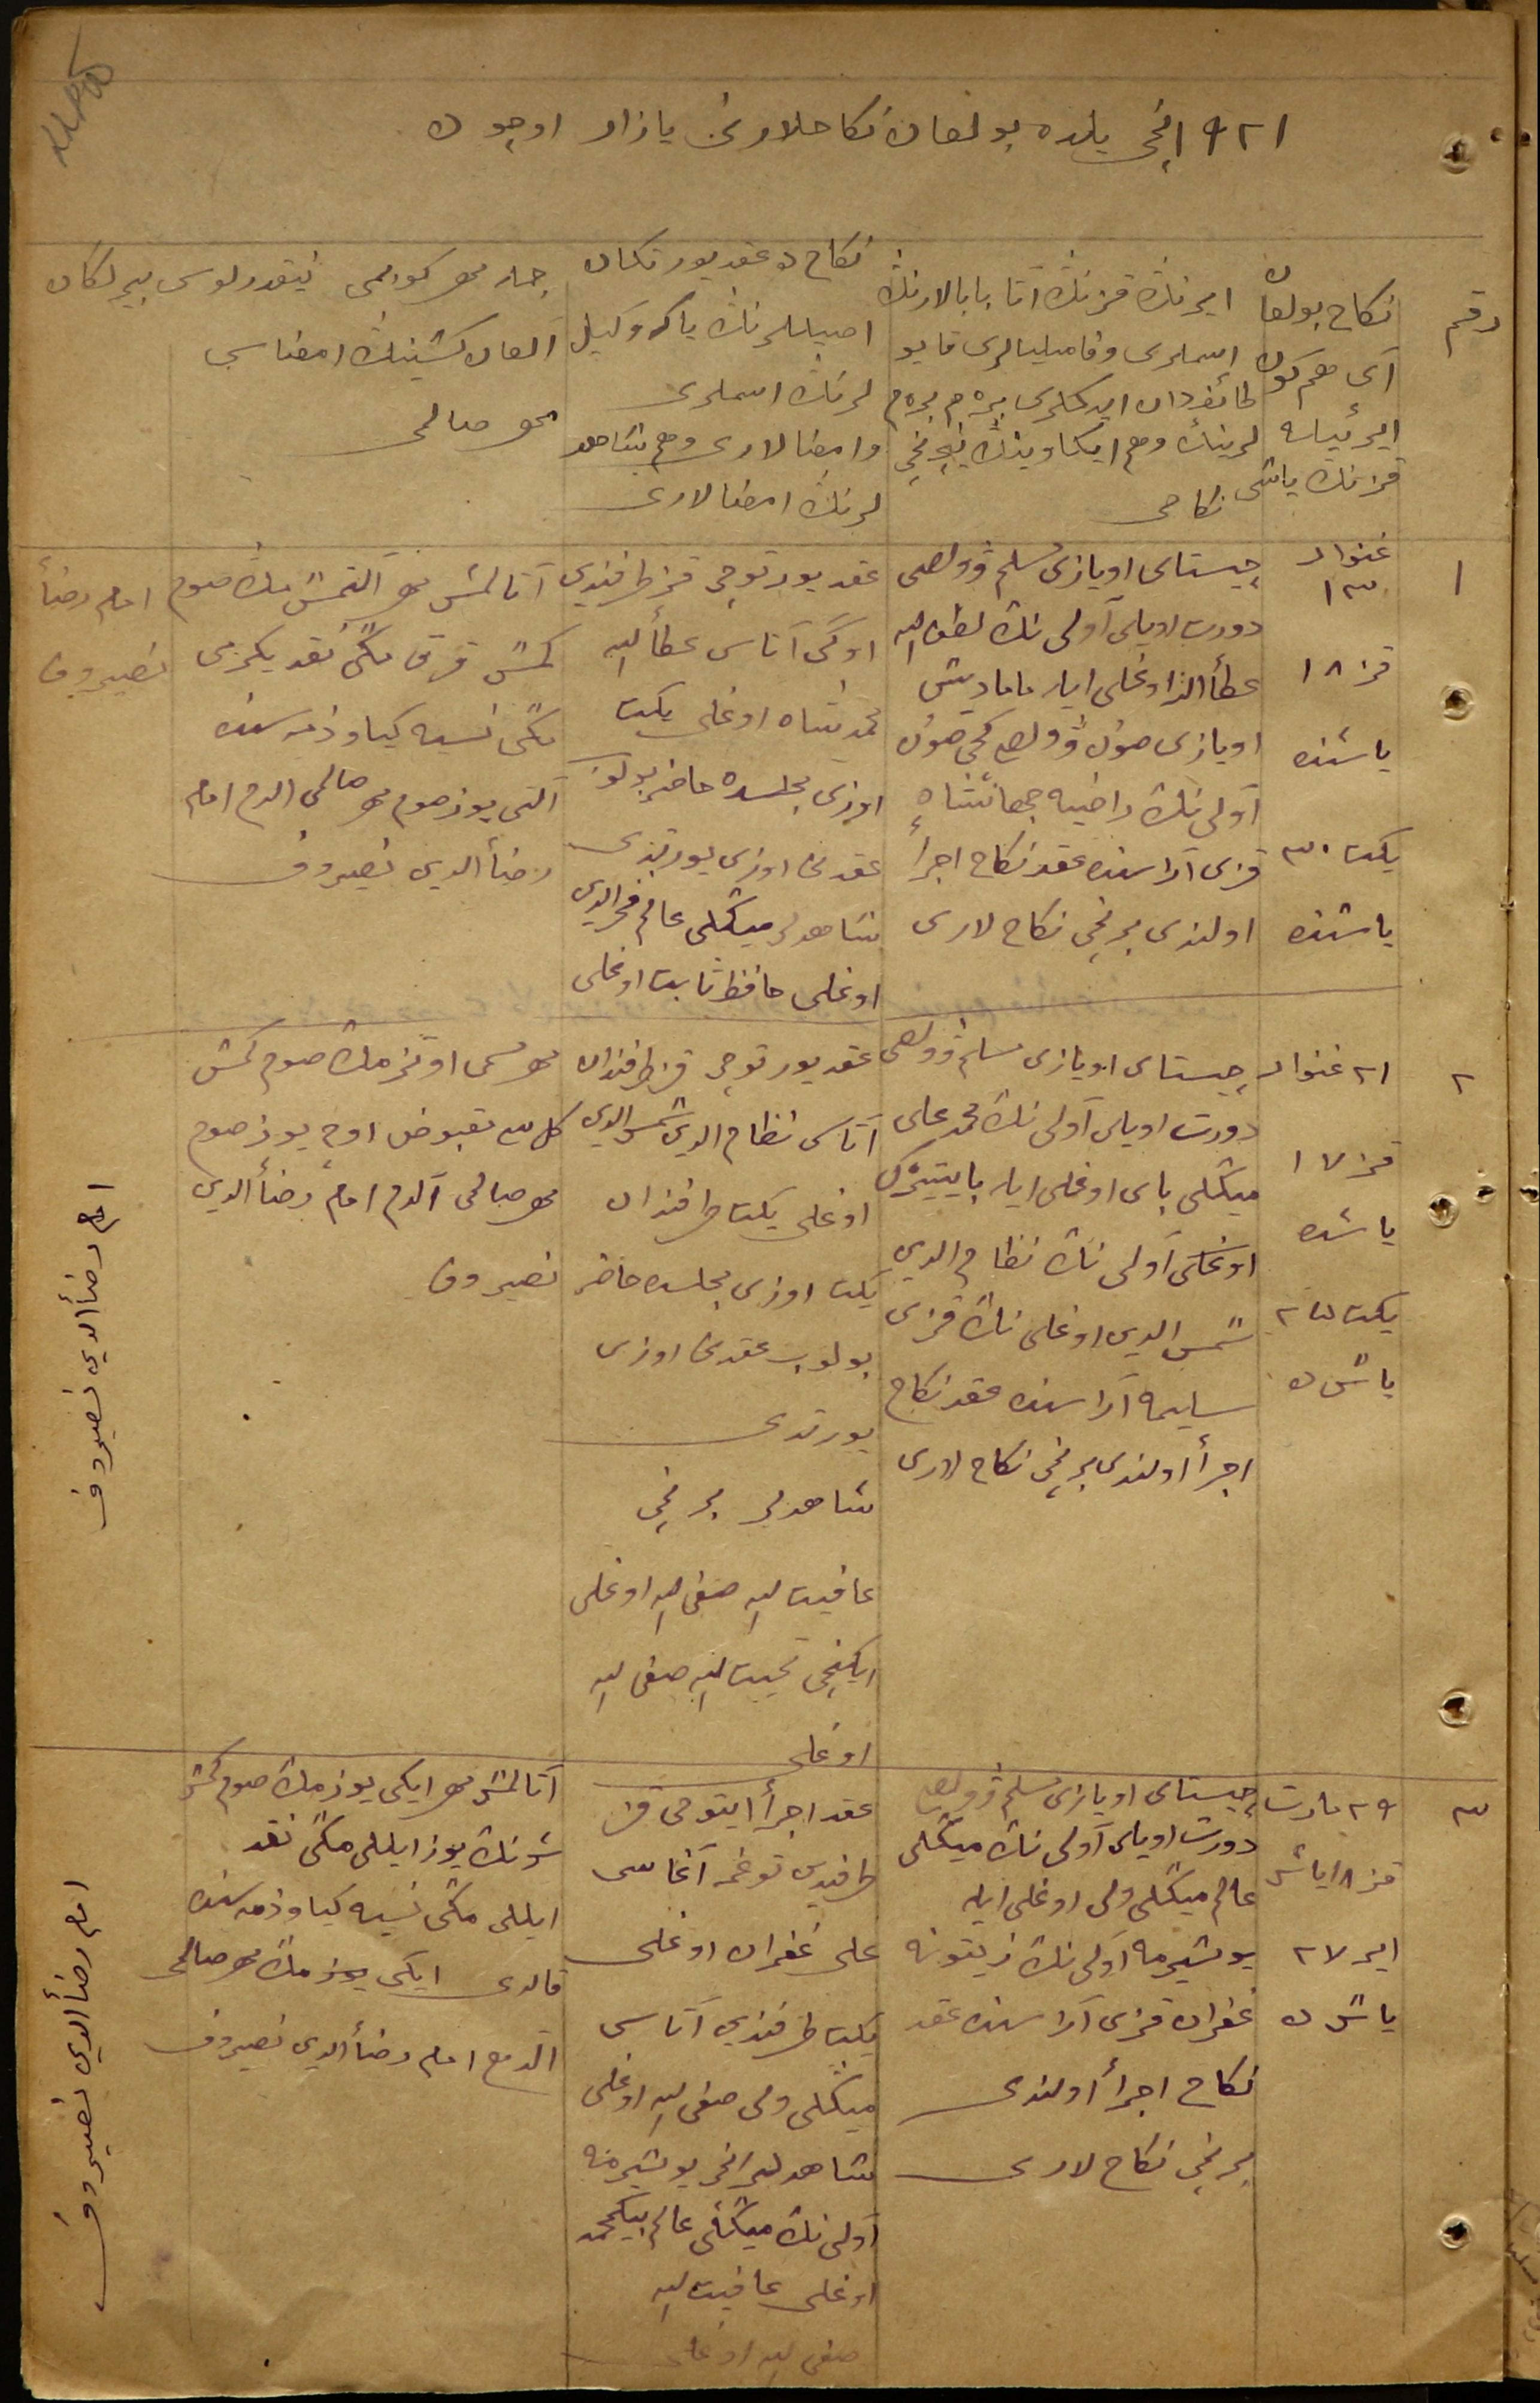 ١٩٢١ نچی یلده بولغان نکاحلارنی یازار اوچون
رقم
نکاح بولغان
آی هم کون
ایر ئیله
قزنڭ یاشی
ایرنڭ قزنڭ اتا بابالارنڭ
اسملری وفامیلیالری قایو
طائفەدان ایدکلری
لرینڭ وهم ایکاوینڭ نیچنچی
نکاحی
نکاح عقد یورتکان
اصیللرنڭ یاکه وکیل
لرنڭ اسملری
وامضالاری وهم شاهد
لرنڭ امضالاری
آلغان کشینڭ امضاسی
مهر صالمی
١
غنوار
١٣
قز ١٨
یاشنده
یکت ٣٠
یاشنده
چیستای اویازی مسلم ڤولصی
دورت اویلی آولی نڭ لطف الله
عطأالله اوغلی ایله مامادیش
اویازی
آولی نڭ راضیه جهانشاه
قزی آراسنده عقد نکاح اجرأ
اولندی برنچی نکاح لاری
عقد یورتوچی قز طرفندن
اوگی آتاسی عطأ الله
محمدشاه اوغلی یکت
اوزی مجلسده حاضر بولوب
عقدنی اوزی یورتدی
شاهدلر میڭلی عالم فخرالدین
اوغلی حافظ ثابت اوغلی
آتالمش مهر آلتمش مڭ صوم
کمش قرق مڭی نقد یکرمی
مڭی نسیه کیاو ذمه سنده
آلتی یوز صوم مهر صالمی آلدم امام
رضأالدین نصیروف
امام رضأ
نصیروف
٢
٢١ غنوار
قز ١٧
یاشده
یکت ٢٥
یاش ده
چیستای اویازی مسلم ڤولصی
دورت اویلی آولی نڭ محمدعلی
میڭلی بای اوغلی ایله
اوغلی آولی نڭ نظام الدین
شمس الدین اوغلی نڭ قزی
سلیمه آراسنده عقد نکاح
اجرأ اولندی برنچی نکاح لاری
عقد یورتوچی قز طرفندان
آتاسی نظام الدین شمس الدین
اوغلی یکت طرفندان
یکت اوزی مجلسده حاضر
بولوب عقدنی اوزی
یورتدی
شاهدلر برنچی
عافیت الله صفی الله اوغلی
ایکنچی الله صفی الله
اوغلی
مهر مسمی اوتز مڭ صوم کمش
کل سی مقبوض اوچ یوز صوم
مهر صالمی آلدم امام رضأالدین
نصیروف
امام رضأالدین نصیروف
٣
٢٩ مارت
قز ١٨ یاش
ایر ٢٧
یاش ده
چیستای اویازی مسلم ڤولصی
دورت اویلی آولی نڭ میڭلی
عالم میڭلی ولی اوغلی ایله
یوشرمه آولی نڭ زیتونه
غفران قزی آراسنده عقد
نکاح اجرأ اولندی
برنچی نکاح لاری
عقد اجرأ ایتوچی قز
طرفندن توغمه آغاسی
علی غفران اوغلی
یکت طرفندن آتاسی
میڭلی ولی صفی الله اوغلی
شاهدلر یوشرمه
آولی نڭ میڭلی عالم بیکمحمد
اوغلی عافیت الله
صفی الله اوغلی
آتالمش مهر ایکی یوز مڭ صوم کمش
شونڭ یوز ایللی مڭی نقد
ایللی مڭی نسیه کیاو ذمه سنده
قالدی ایکی یوز مڭ مهر صالمی
آلدم امام رضأالدین نصیروف
امام رضأالدین نصیروف